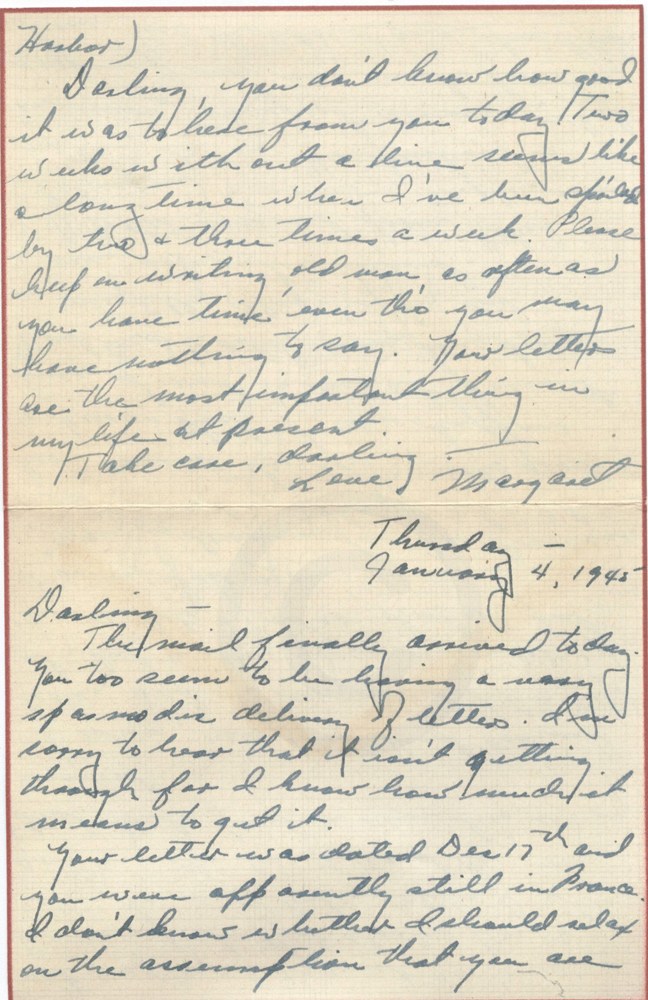 Harbor)
Darling, you don't know how good
it was to hear from you today. Two
weeks without a line seems like
a long time when I've been spoiled
by two & three times a week. Please
keep on writing, old man, as often as
you have time even tho you may
have nothing to say. Your letters
are the most important thing in
my life at present.
Take care, darling.
Love, Margaret
Thursday –
January 4, 1945
Darling –
The mail finally arrived today.
You too seem to be having a very
spasmodic delivery of letters. I'm
sorry to hear that it isn't getting
through for I know how much it
means to get it.
Your letter was dated Dec 17th and
you were apparently still in France.
I don't know whether I should relax
on the assumption that you are